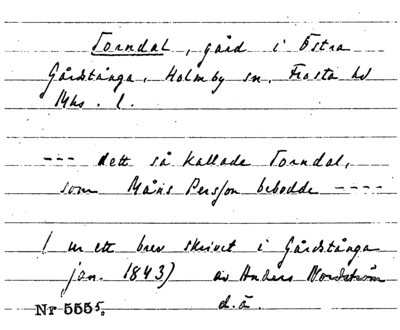 Torndal, gård i Östra
Gårdstånga, Holmby sn, Frosta hd
Mhs. l.
--- dett så kallade Torndal,
som Måns Persson bebodde ----
( ur ett brev skrivet i Gårdstånga
jan. 1843) av Anders Nordström
d.ä.
Nr 5555.